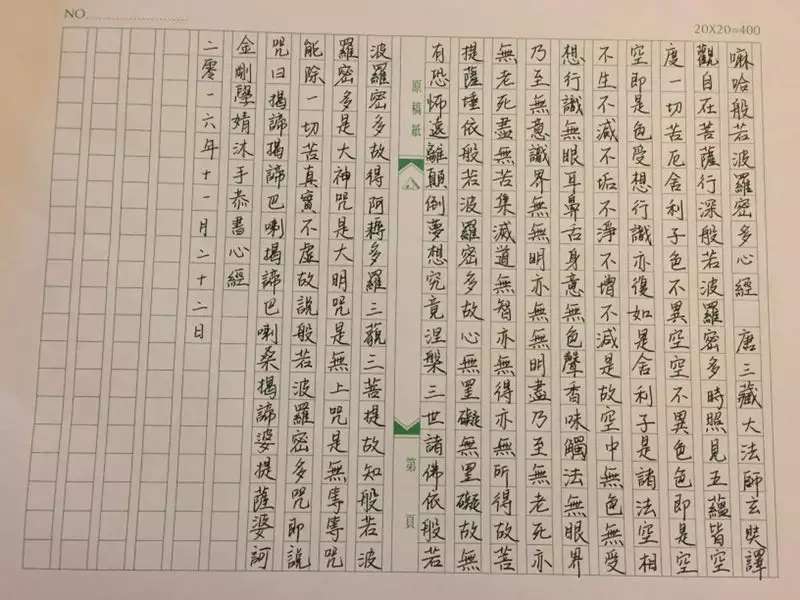 NO
20X20=400
嘛哈般若波羅密多心經 唐三藏大法師玄奘譯
觀自在菩薩行深般若波羅密多時照見五蘊皆空
度一切苦厄舍利子色不異空空不異色色即是空
空即是色受想行識亦復如是舍利子是諸法空相
不生不滅不垢不淨不增不減是故空中無色無受
想行識無眼耳鼻舌身意無色聲香味觸法無眼界
乃至無意識界無無明亦無無明盡乃至無老死亦
無老死盡無苦集滅道無智亦無得亦無所得故菩
提薩埵依般若波羅密多故心無罣礙無罣礙故無
有恐怖遠離顛倒夢想究竟涅槃三世諸佛依般若
原稿紙
第 頁
波羅密多故得阿耨多羅三藐三菩提故知般若波
羅密多是大神咒是大明咒是無上咒是無等等咒
能除一切苦真實不虛故說般若波羅密多咒即說
咒曰揭諦揭諦巴喇揭諦巴喇桑揭諦婆提薩婆訶
金剛婧沐手恭書心經
二零一六年十一月二十二日